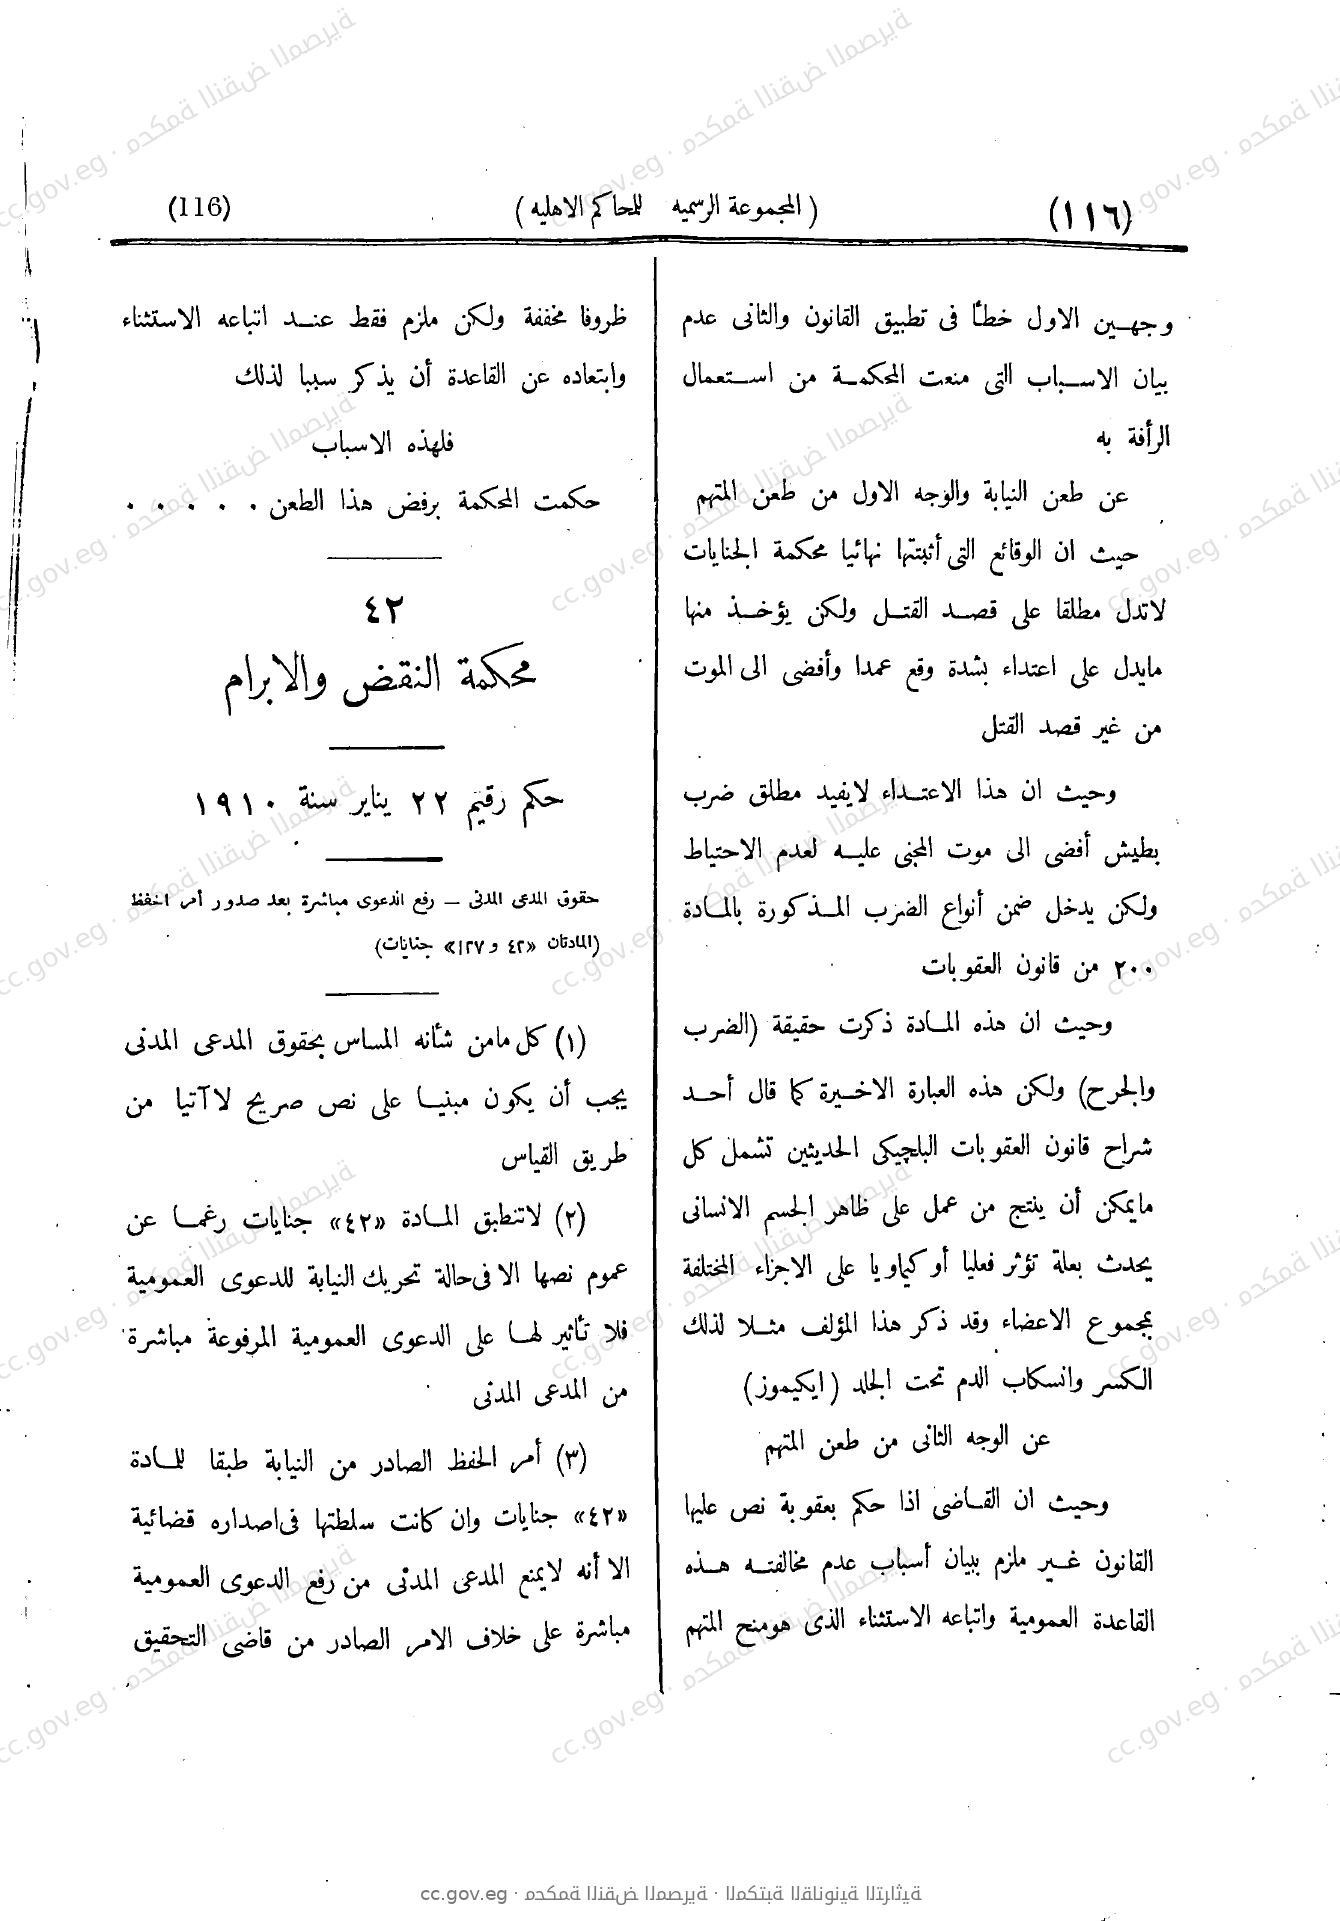 (١١٦)
( المجموعة الرسميه للمحاكم الاهليه )
(116)
وجهـين الاول خطأ فى تطبيق القانون والثانى عدم
بيان الاسـباب التى منعت المحكمـة من اسـتعمال
الرأفة به
عن طعن النيابة والوجه الاول من طعن المتهم
حيث ان الوقائع التى أثبتتها نهائيا محكمة الجنايات
لاتدل مطلقا على قصـد القتـل ولكن يؤخـذ منها
مايدل على اعتداء بشدة وقع عمدا وأفضى الى الموت
من غير قصد القتل
وحيث ان هذا الاعتـداء لايفيد مطلق ضرب
بطيش أفضى الى موت المجنى عليـه لعدم الاحتياط
ولكن يدخل ضمن أنواع الضرب المـذكورة بالمـادة
٢٠٠ من قانون العقوبات
وحيث ان هذه المـادة ذكرت حقيقة (الضرب
والجرح) ولكن هذه العبارة الاخـيرة كما قال أحـد
شراح قانون العقوبات البلچيكى الحديثين تشمل كل
مايمكن أن ينتج من عمل على ظاهر الجسم الانسانى
يحدث بعلة تؤثر فعليا أو كيماويا على الاجزاء المختلفة
بمجموع الاعضاء وقد ذكر هذا المؤلف مثـلا لذلك
الكسر وانسكاب الدم تحت الجلد ( ايكيموز )
عن الوجه الثانى من طعن المتهم
وحيث ان القـاضى اذا حكم بعقوبة نص عليها
القانون غـير ملزم ببيان أسباب عدم مخالفتـه هـذه
القاعدة العمومية واتباعه الاستثناء الذى هومنح المتهم
ظروفا مخففة ولكن ملزم فقط عنـد اتباعه الاستثناء
وابتعاده عن القاعدة أن يذكر سببا لذلك
فلهذه الاسباب
حكمت المحكمة برفض هذا الطعن . . . . .
٤٢
محكمة النقض والابرام
حكم رقيم ٢٢ يناير سنة ١٩١٠
حقوق المدعى المدنى — رفع الدعوى مباشرة بعد صدور أمر الحفظ
(المادتان «٤٢ و ١٢٧» جنايات)
(١) كل مامن شأنه المساس بحقوق المدعى المدنى
يجب أن يكون مبنيـا على نص صريح لا آتيا من
طريق القياس
(٢) لاتنطبق المـادة «٤٢» جنايات رغمـا عن
عموم نصها الا فى حالة تحريك النيابة للدعوى العمومية
فلا تأثير لهـا على الدعوى العمومية المرفوعة مباشرة
من المدعى المدنى
(٣) أمر الحفظ الصادر من النيابة طبقا للمـادة
«٤٢» جنايات وان كانت سلطتها فى اصداره قضائية
الا أنه لايمنع المدعى المدنى من رفع الدعوى العمومية
مباشرة على خلاف الامر الصادر من قاضى التحقيق
cc.gov.eg · محكمة النقض المصرية · المكتبة القانونية التراثية